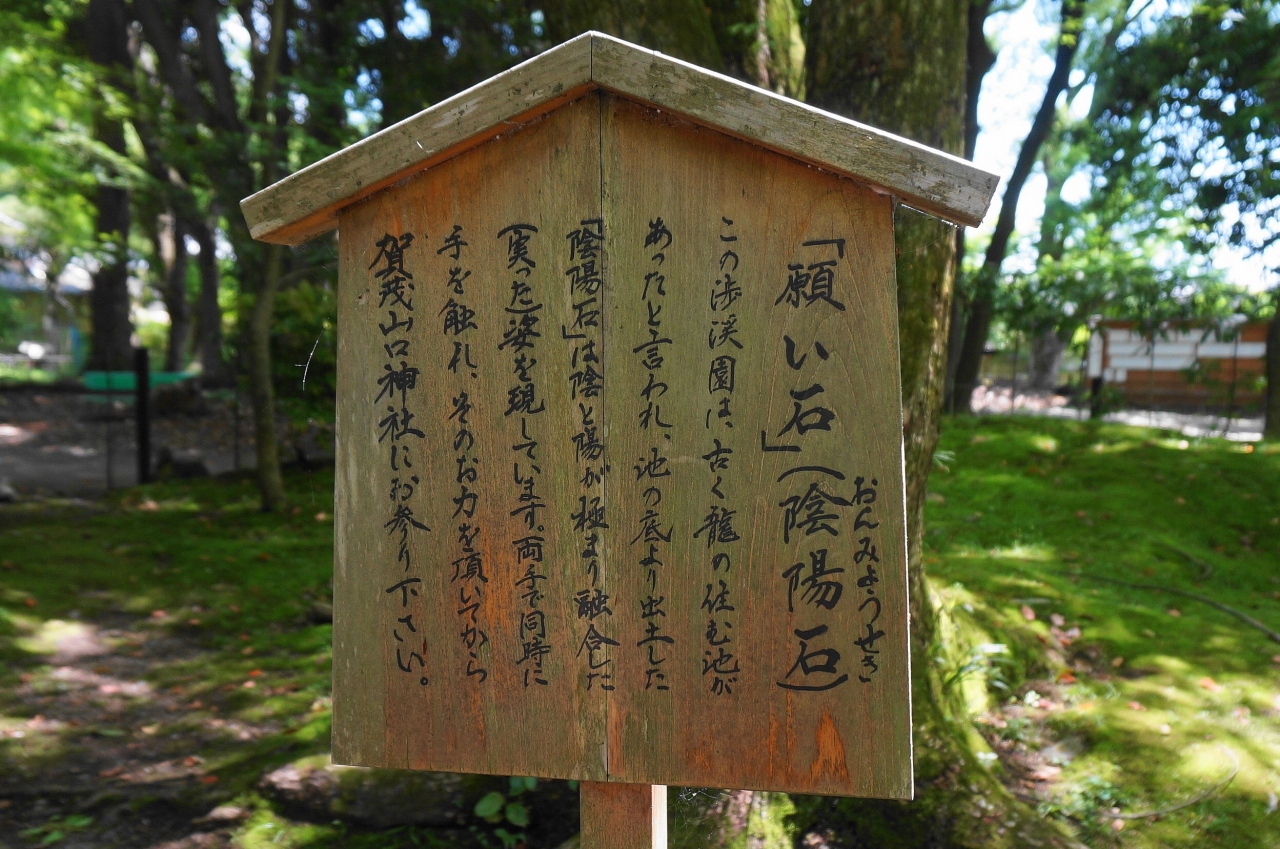 「願い石」(陰陽石)
おんみょうせき
この渉渓園は、古く龍の住む池が
あったと言われ、池の底より出土した
「陰陽石」は陰と陽が極まり融合した
(実った)姿を現しています。両手で同時に
手を触れ、そのお力を頂いてから
賀茂山口神社にお参り下さい。